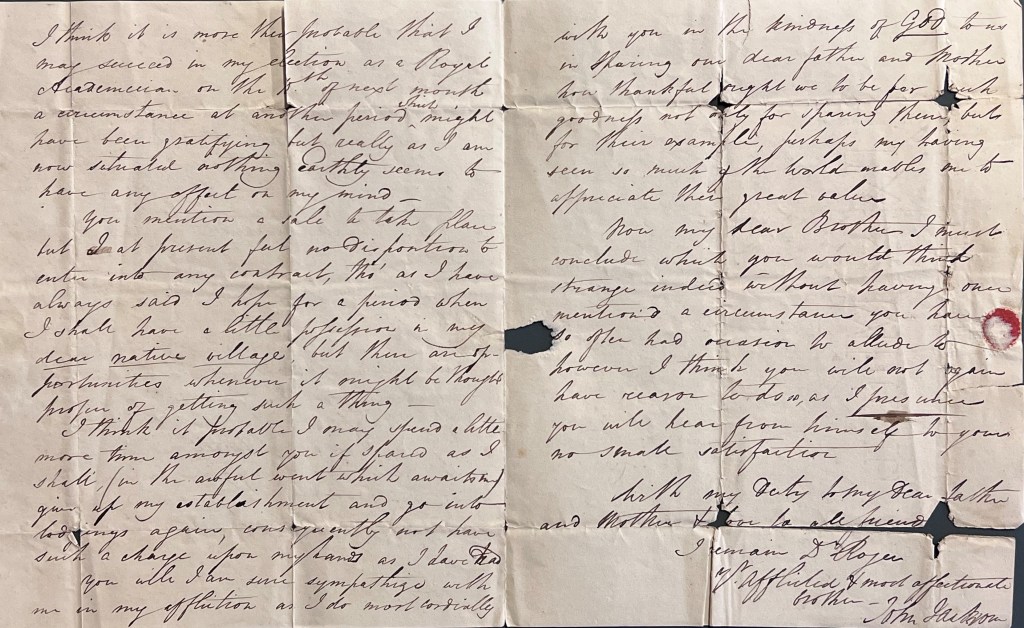 I think it is more than probable that I
may succeed in my election as a Royal
Academician on the th of next month
a circumstance at another period that might
have been gratifying but really as I am
now situated nothing Earthly seems to
have any effect on my mind –
You mention a sale to take place
but I at present feel no disposition to
enter into any contract, tho' as I have
always said I hope for a period when
I shall have a little possession in my
dear native village, but there are op-
portunities whenever it might be thought
proper of getting such a thing –
I think it probable I may spend a little
more time amongst you if spared as I
shall, (in the awful event which awaits me)
give up my establishment and go into
lodgings again, consequently not have
such a charge upon my hands as I have had
You will I am sure sympathize with
me in my affliction as I do most cordially
with you in the kindness of God to us
in sparing our dear father and Mother
how thankful ought we to be for such
goodness not only for sparing them, but
for their example, perhaps my having
seen so much of the world enables me to
appreciate their great value
Now my dear Brother I must
conclude which you would think
strange indeed without having once
mention'd a circumstance you have
so often had occasion to allude to
however I think you will not again
have reason to do so, as I presume
you will hear from himself to your
no small satisfaction
With my Duty to my Dear father
and Mother & love to all friends
I remain Dr Roger
Yr afflicted & most affectionate
brother –
John Jackson